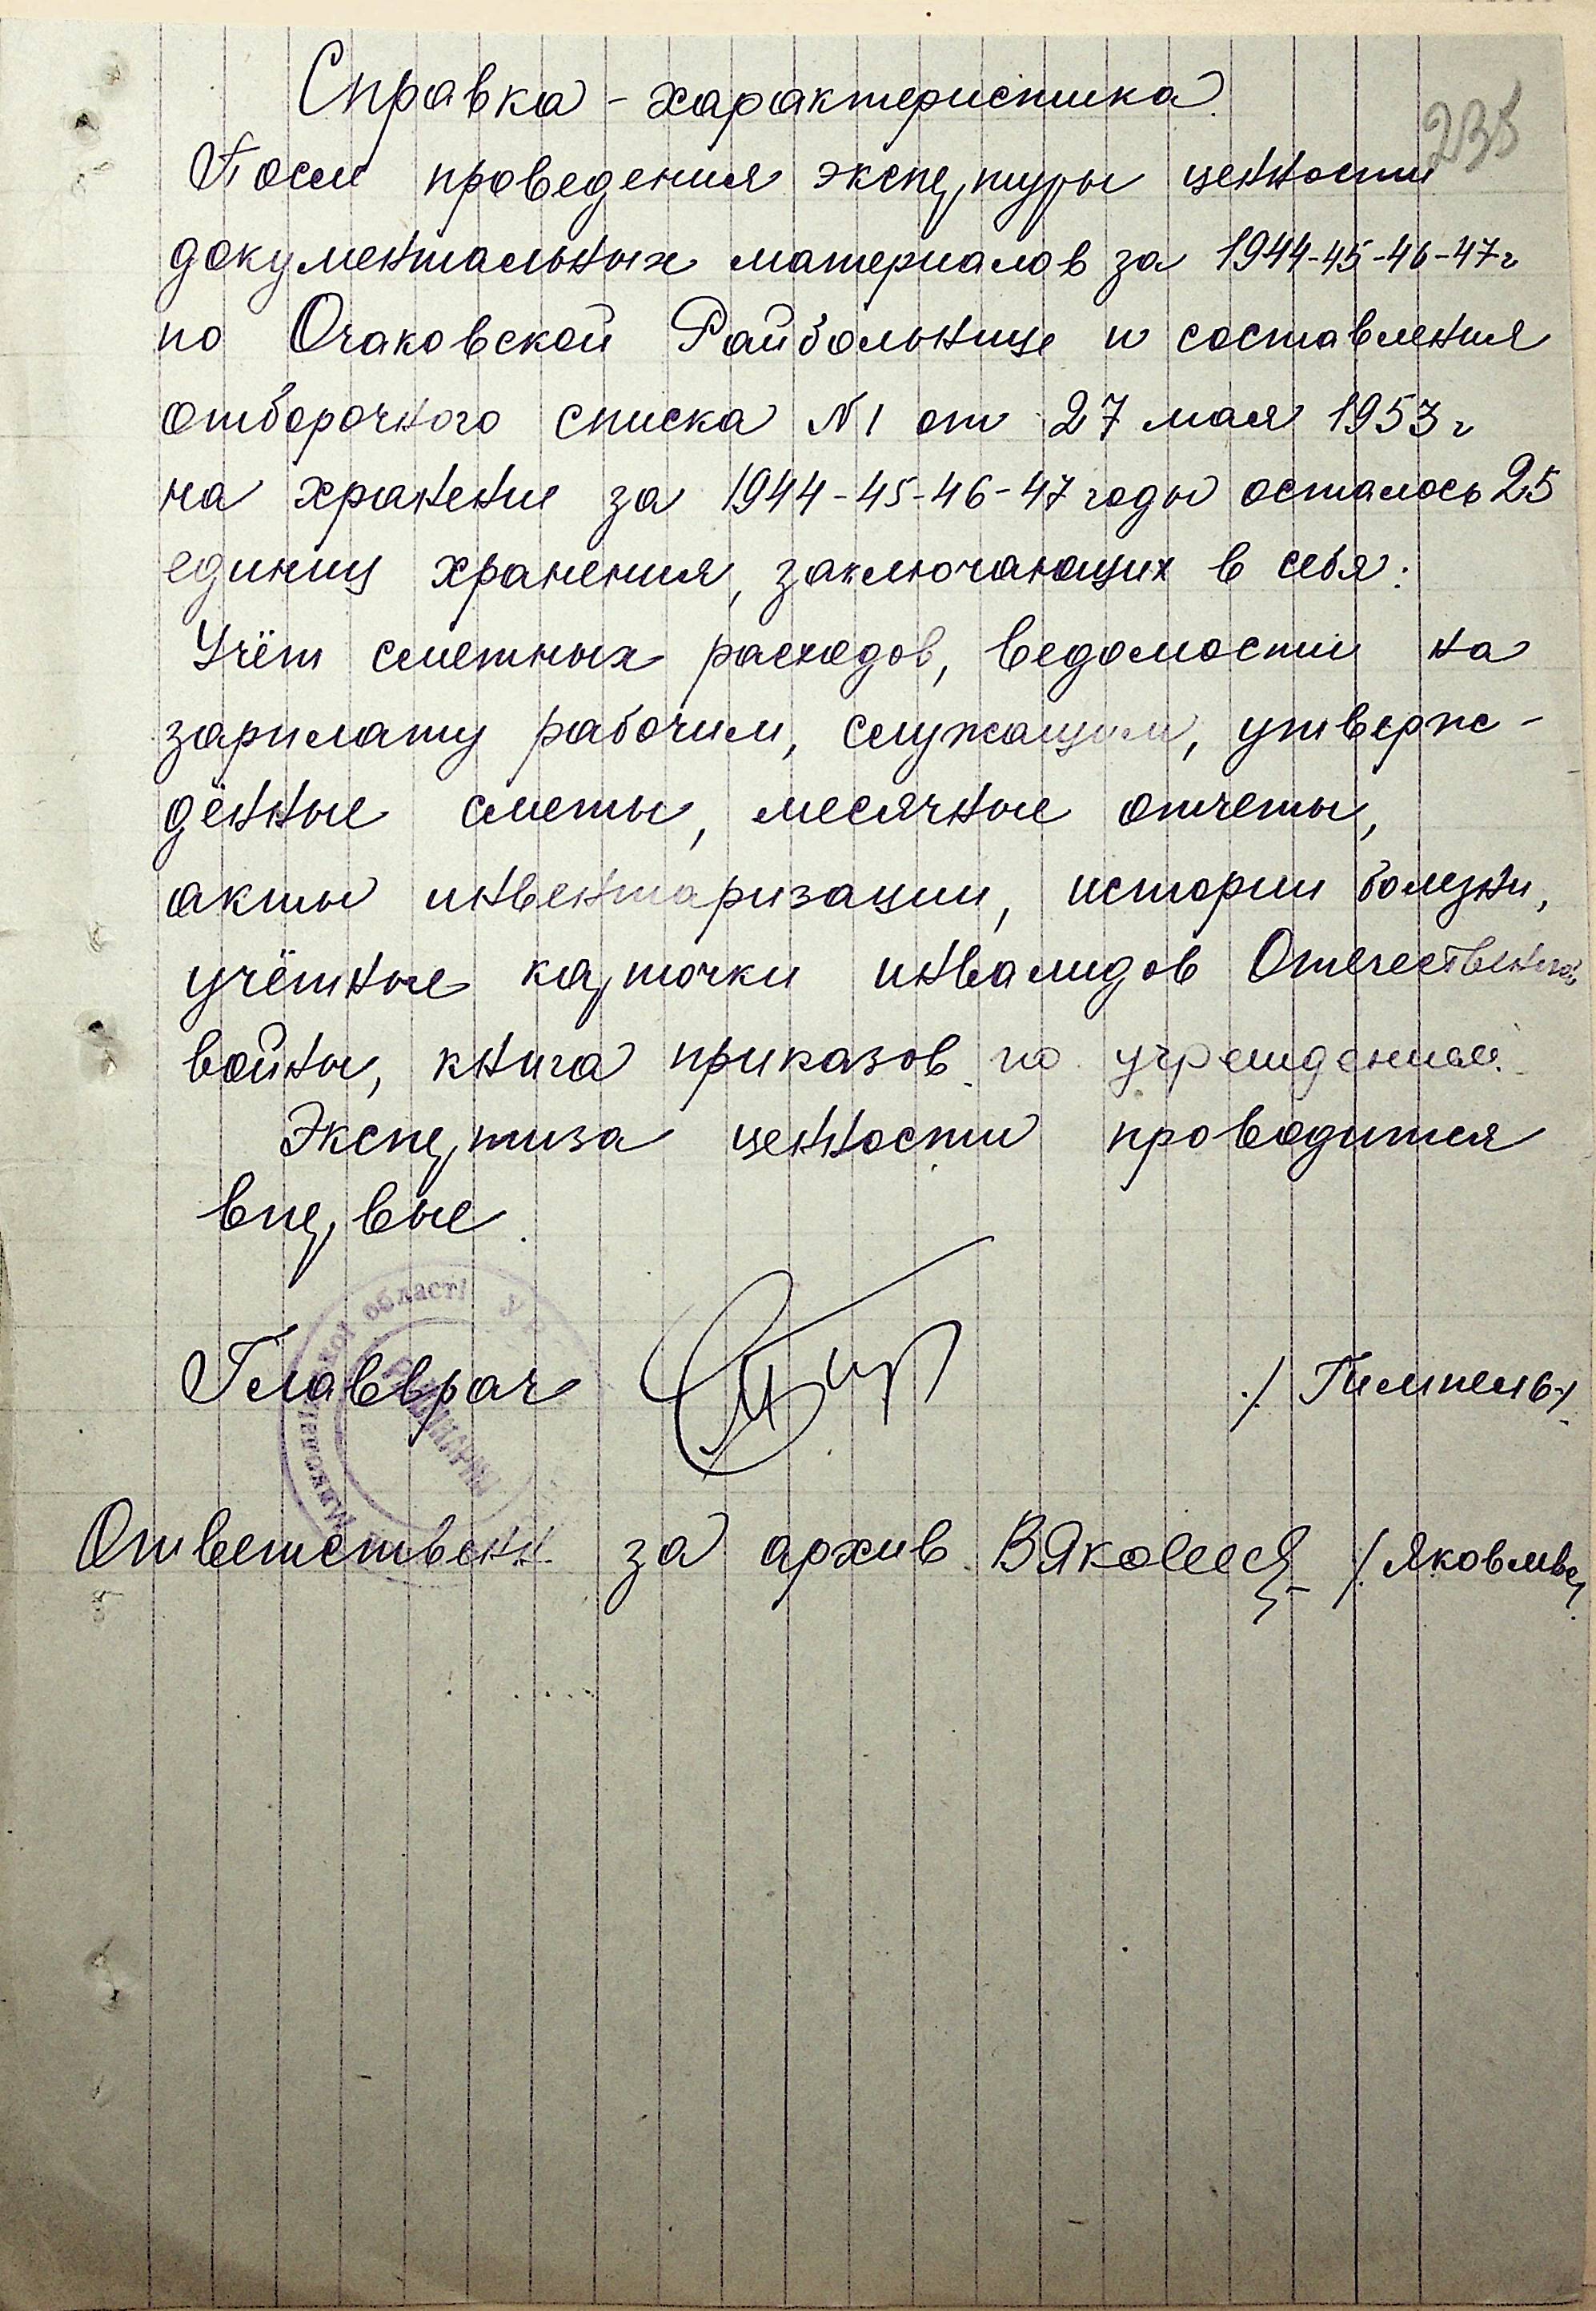 Справка - характеристика.
235
После проведения экспертуры ценности
документальных материалов за 1944-45-46-47 г
по Очаковской Райбольнице и составления
отборочного списка N1 от 27 мая 1953 г
на хранение за 1944-45-46-47 годы осталось 25
единиц хранения, заключающих в себя:
Учёт сметных расходов, ведомости на
зарплату рабочим, служащим, утверж-
дённые сметы, месячные отчеты,
акты инвентаризации, истории болезни,
учётные карточки инвалидов Отечественной
войны, книга приказов по учреждениям.
Экспертиза ценности проводится
впервые.
області У
Главврач /Гимпель/
Ответственн за архив ВЯковлев /Яковлев